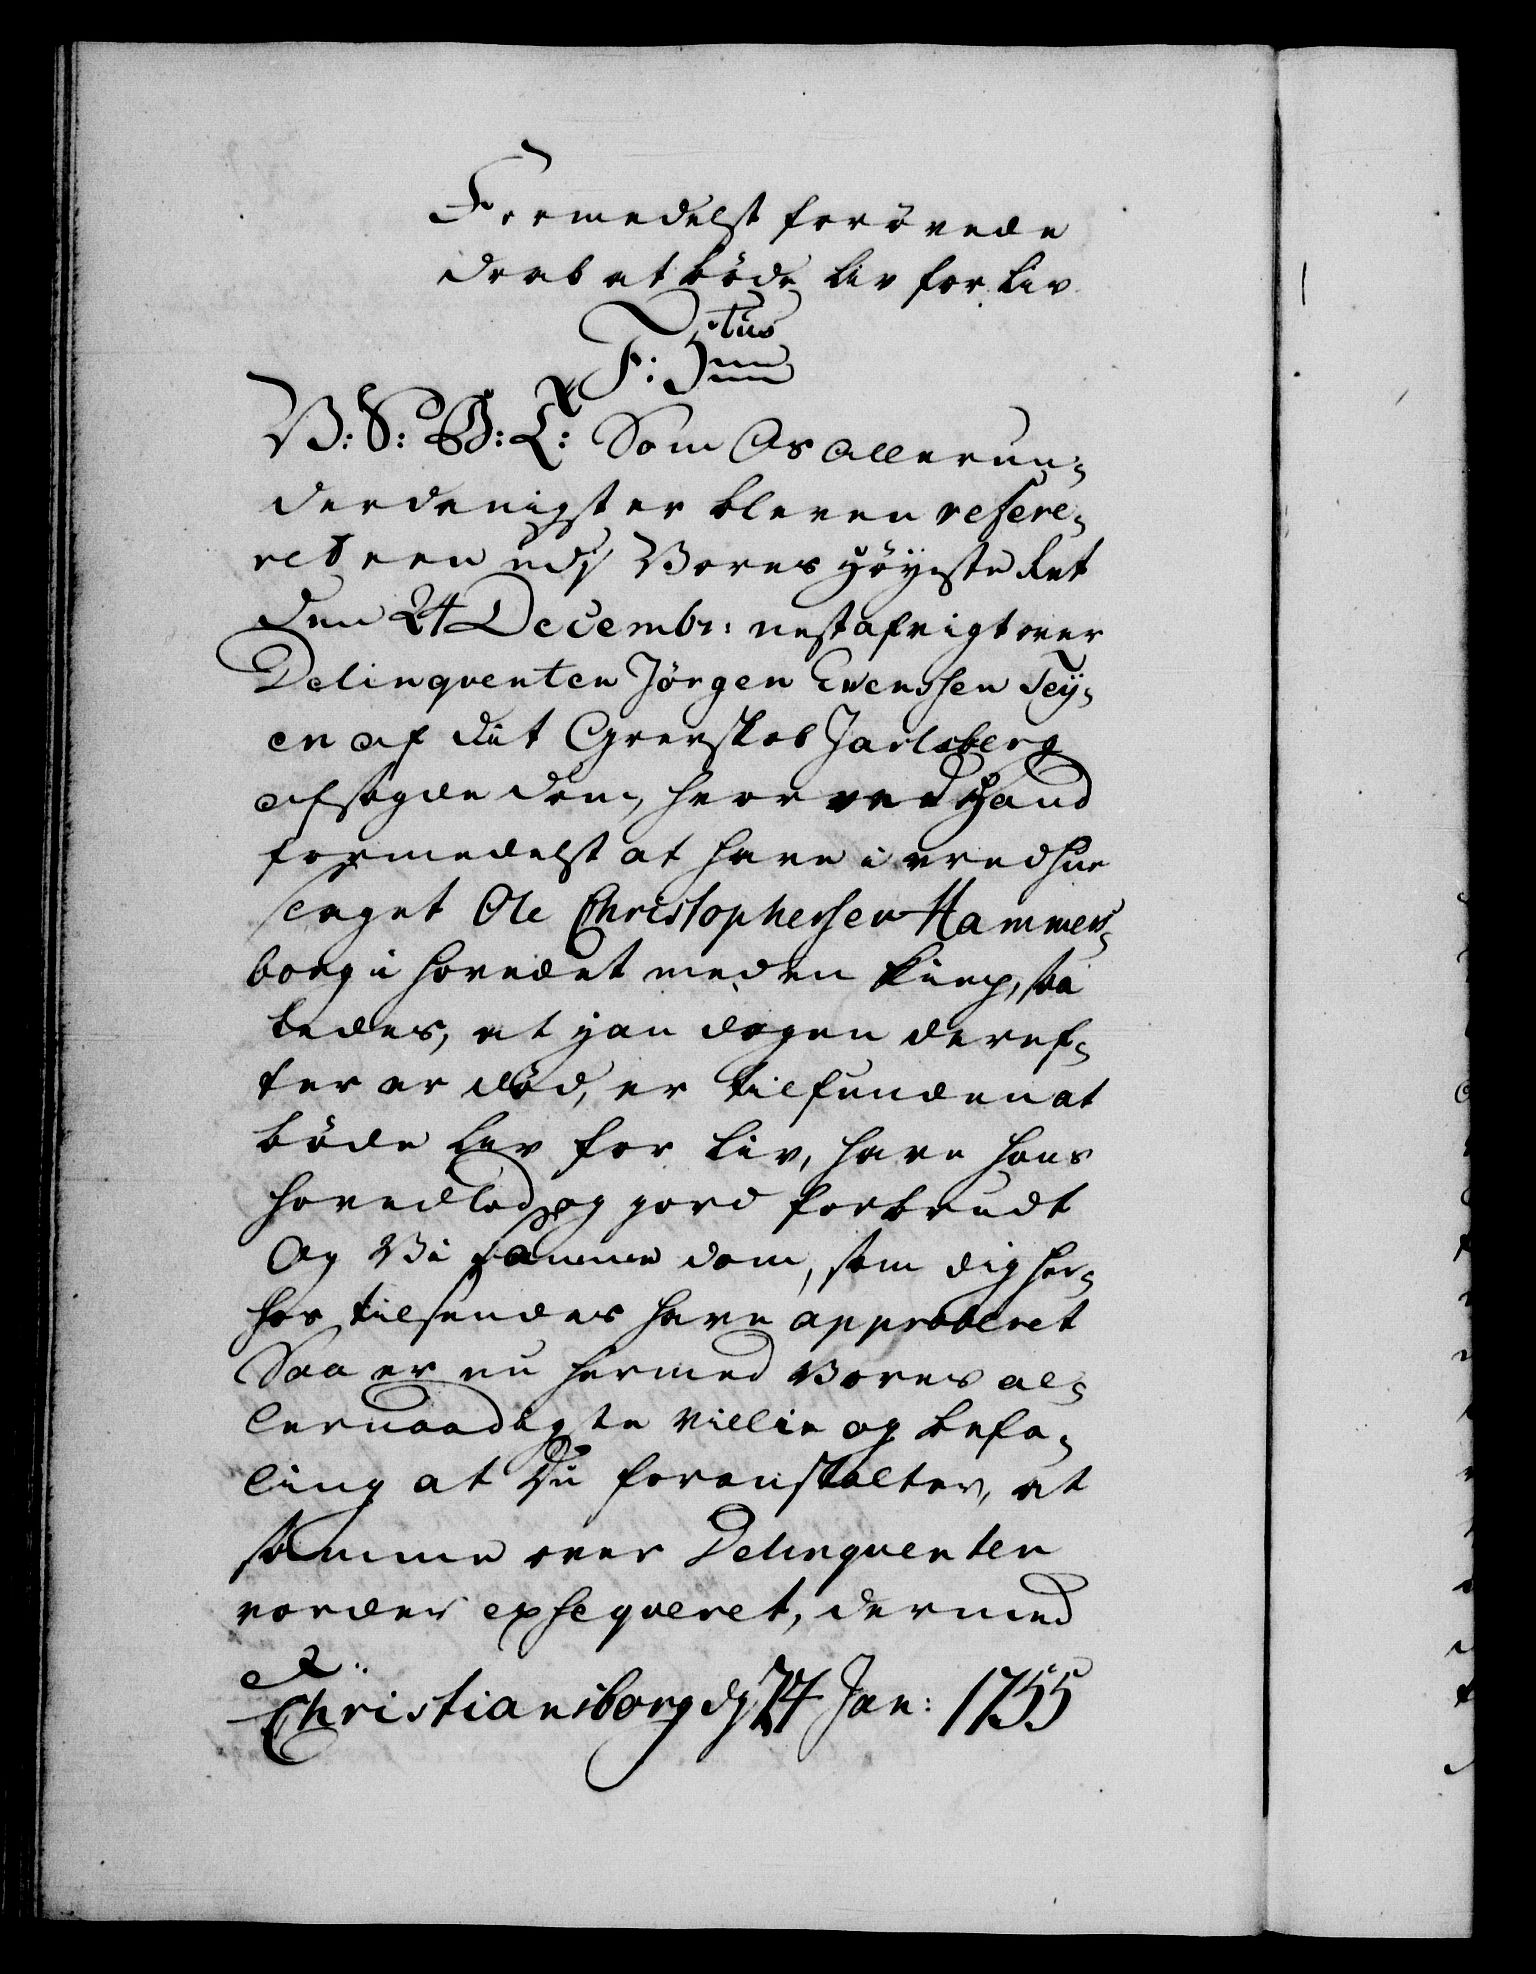 Formedelst forövede
drab at böde Liv for Liv
F: 5tus
V: S: G: T: Som Os allerun-
derdanigst er bleven refere-
ret een udj Vores Höyeste Ret
den 24 Decembr: nestafvigt over
Delinqventen Jörgen Evenssen Tey-
en af dit Grevskab Jarlsberg
afsagde dom, hvorved Hand
formedelst at have i vredhue
slaget Ole Christophersen Hammers-
borg i hovedet med en , saa
ledes, at han dagen deref-
ter er död, er tilfunden at
böde Liv for Liv, have hans
hovedlod og jord forbrudt
Og Vi samme dom, som dig her-
hos tilsendes have approberet
Saa er nu hermed Vores al-
lernaadigste Villie og befa-
ling at Du foranstalter, at
samme over Delinqventen
vorder exseqveret, dermed
Christiansborg d: 24 Jan: 1755